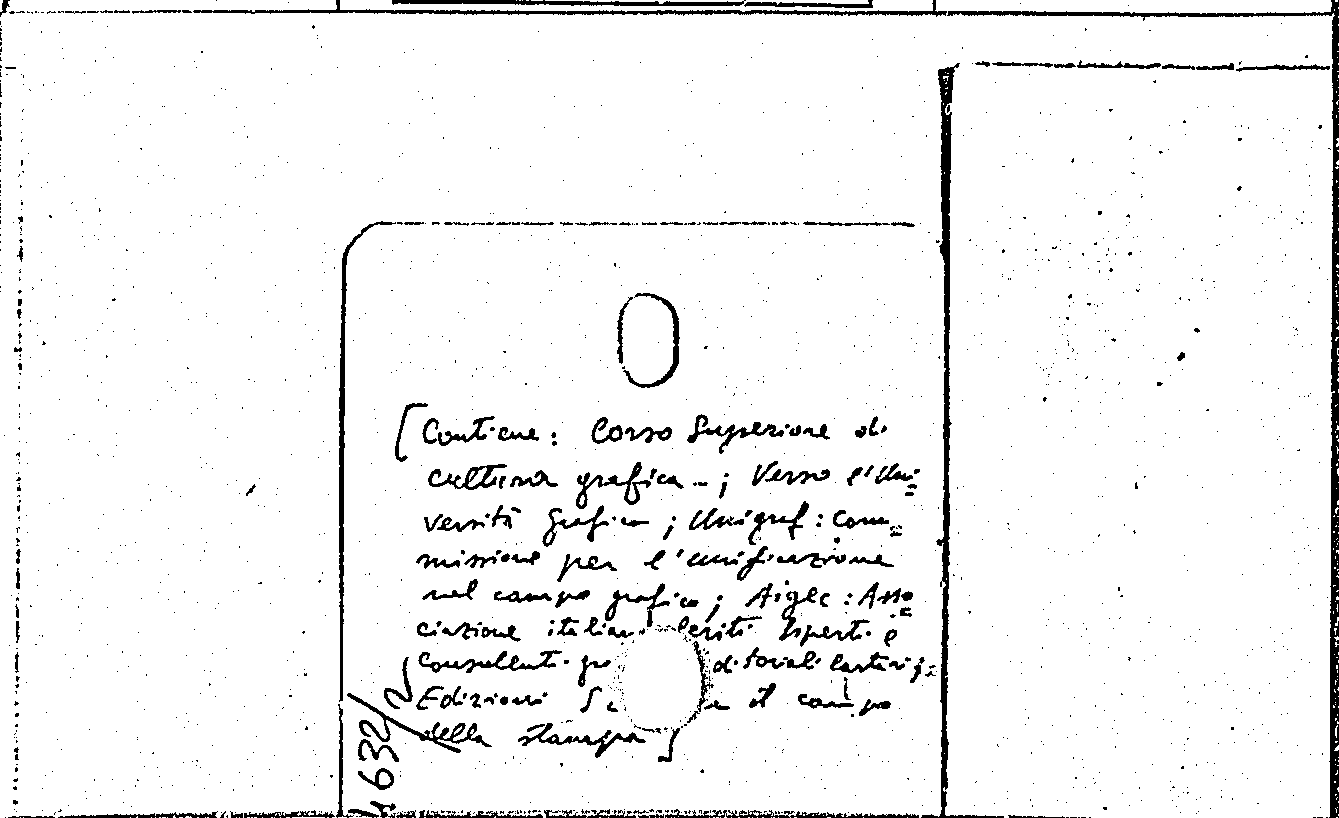 [Contiene: Corso Superiore di
cultura grafica - ; Verso l'Uni=
versità grafica ; Unigraf : Com=
missione per l'unificazione
nel campo grafico ; Aigec : Asso=
ciazione italiana Periti Esperti e
consulenti ditoriali cartari ;
Edizioni il campo
della stampa]
4632/2